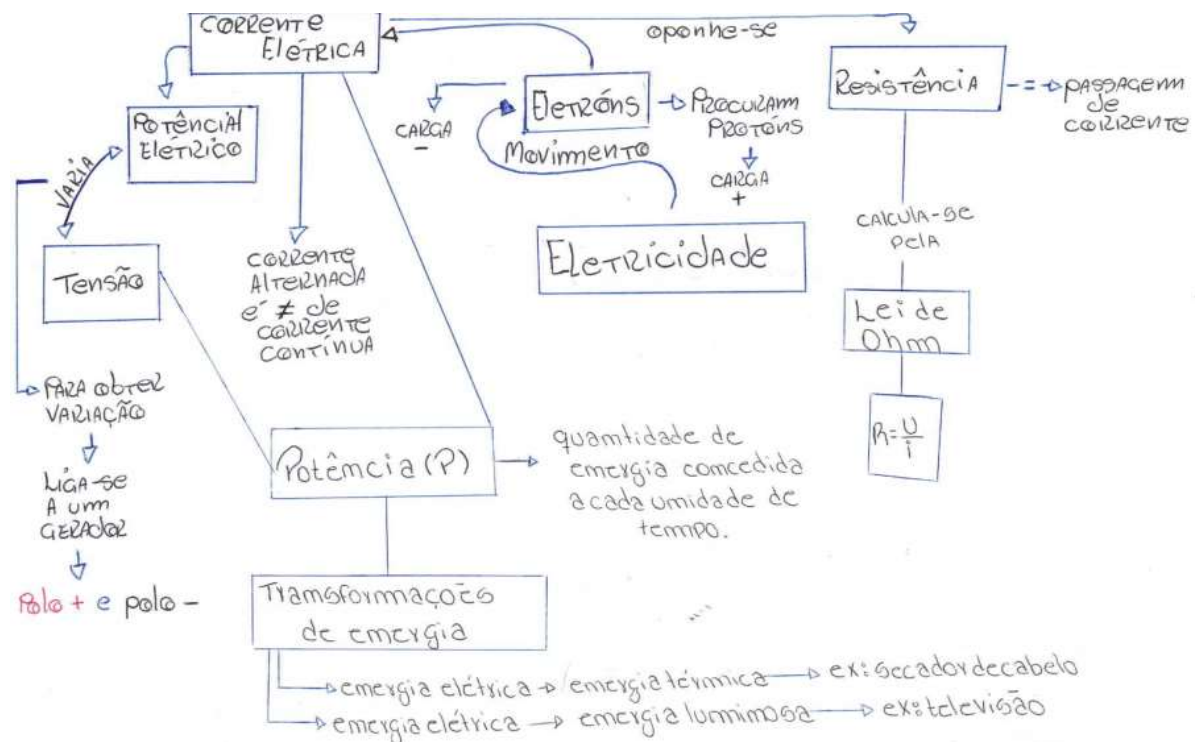 CORRENTE
ELÉTRICA
oponhe-se
Resistência
- = -
PASSAGEM
de
CORRENTE
POTÊNCIAL
ELÉTRICO
VARIA
TENSÃO
CARGA
-
ELETRÓNS
PROCURAM
PROTÓNS
CARGA
+
Movimento
ELETRICIDADE
CORRENTE
ALTERNADA
é ≠ de
CORRENTE
CONTÍNUA
CALCULA-SE
PELA
Lei de
Ohm
R=U/i
PARA obter
VARIAÇÃO
LIGA-SE
A um
GERADOR
Polo + e polo -
Potência (P)
quantidade de
energia concedida
a cada unidade de
tempo.
Transformações
de energia
energia elétrica → energia térmica → ex: secador de cabelo
energia elétrica → energia luminosa → ex: televisão